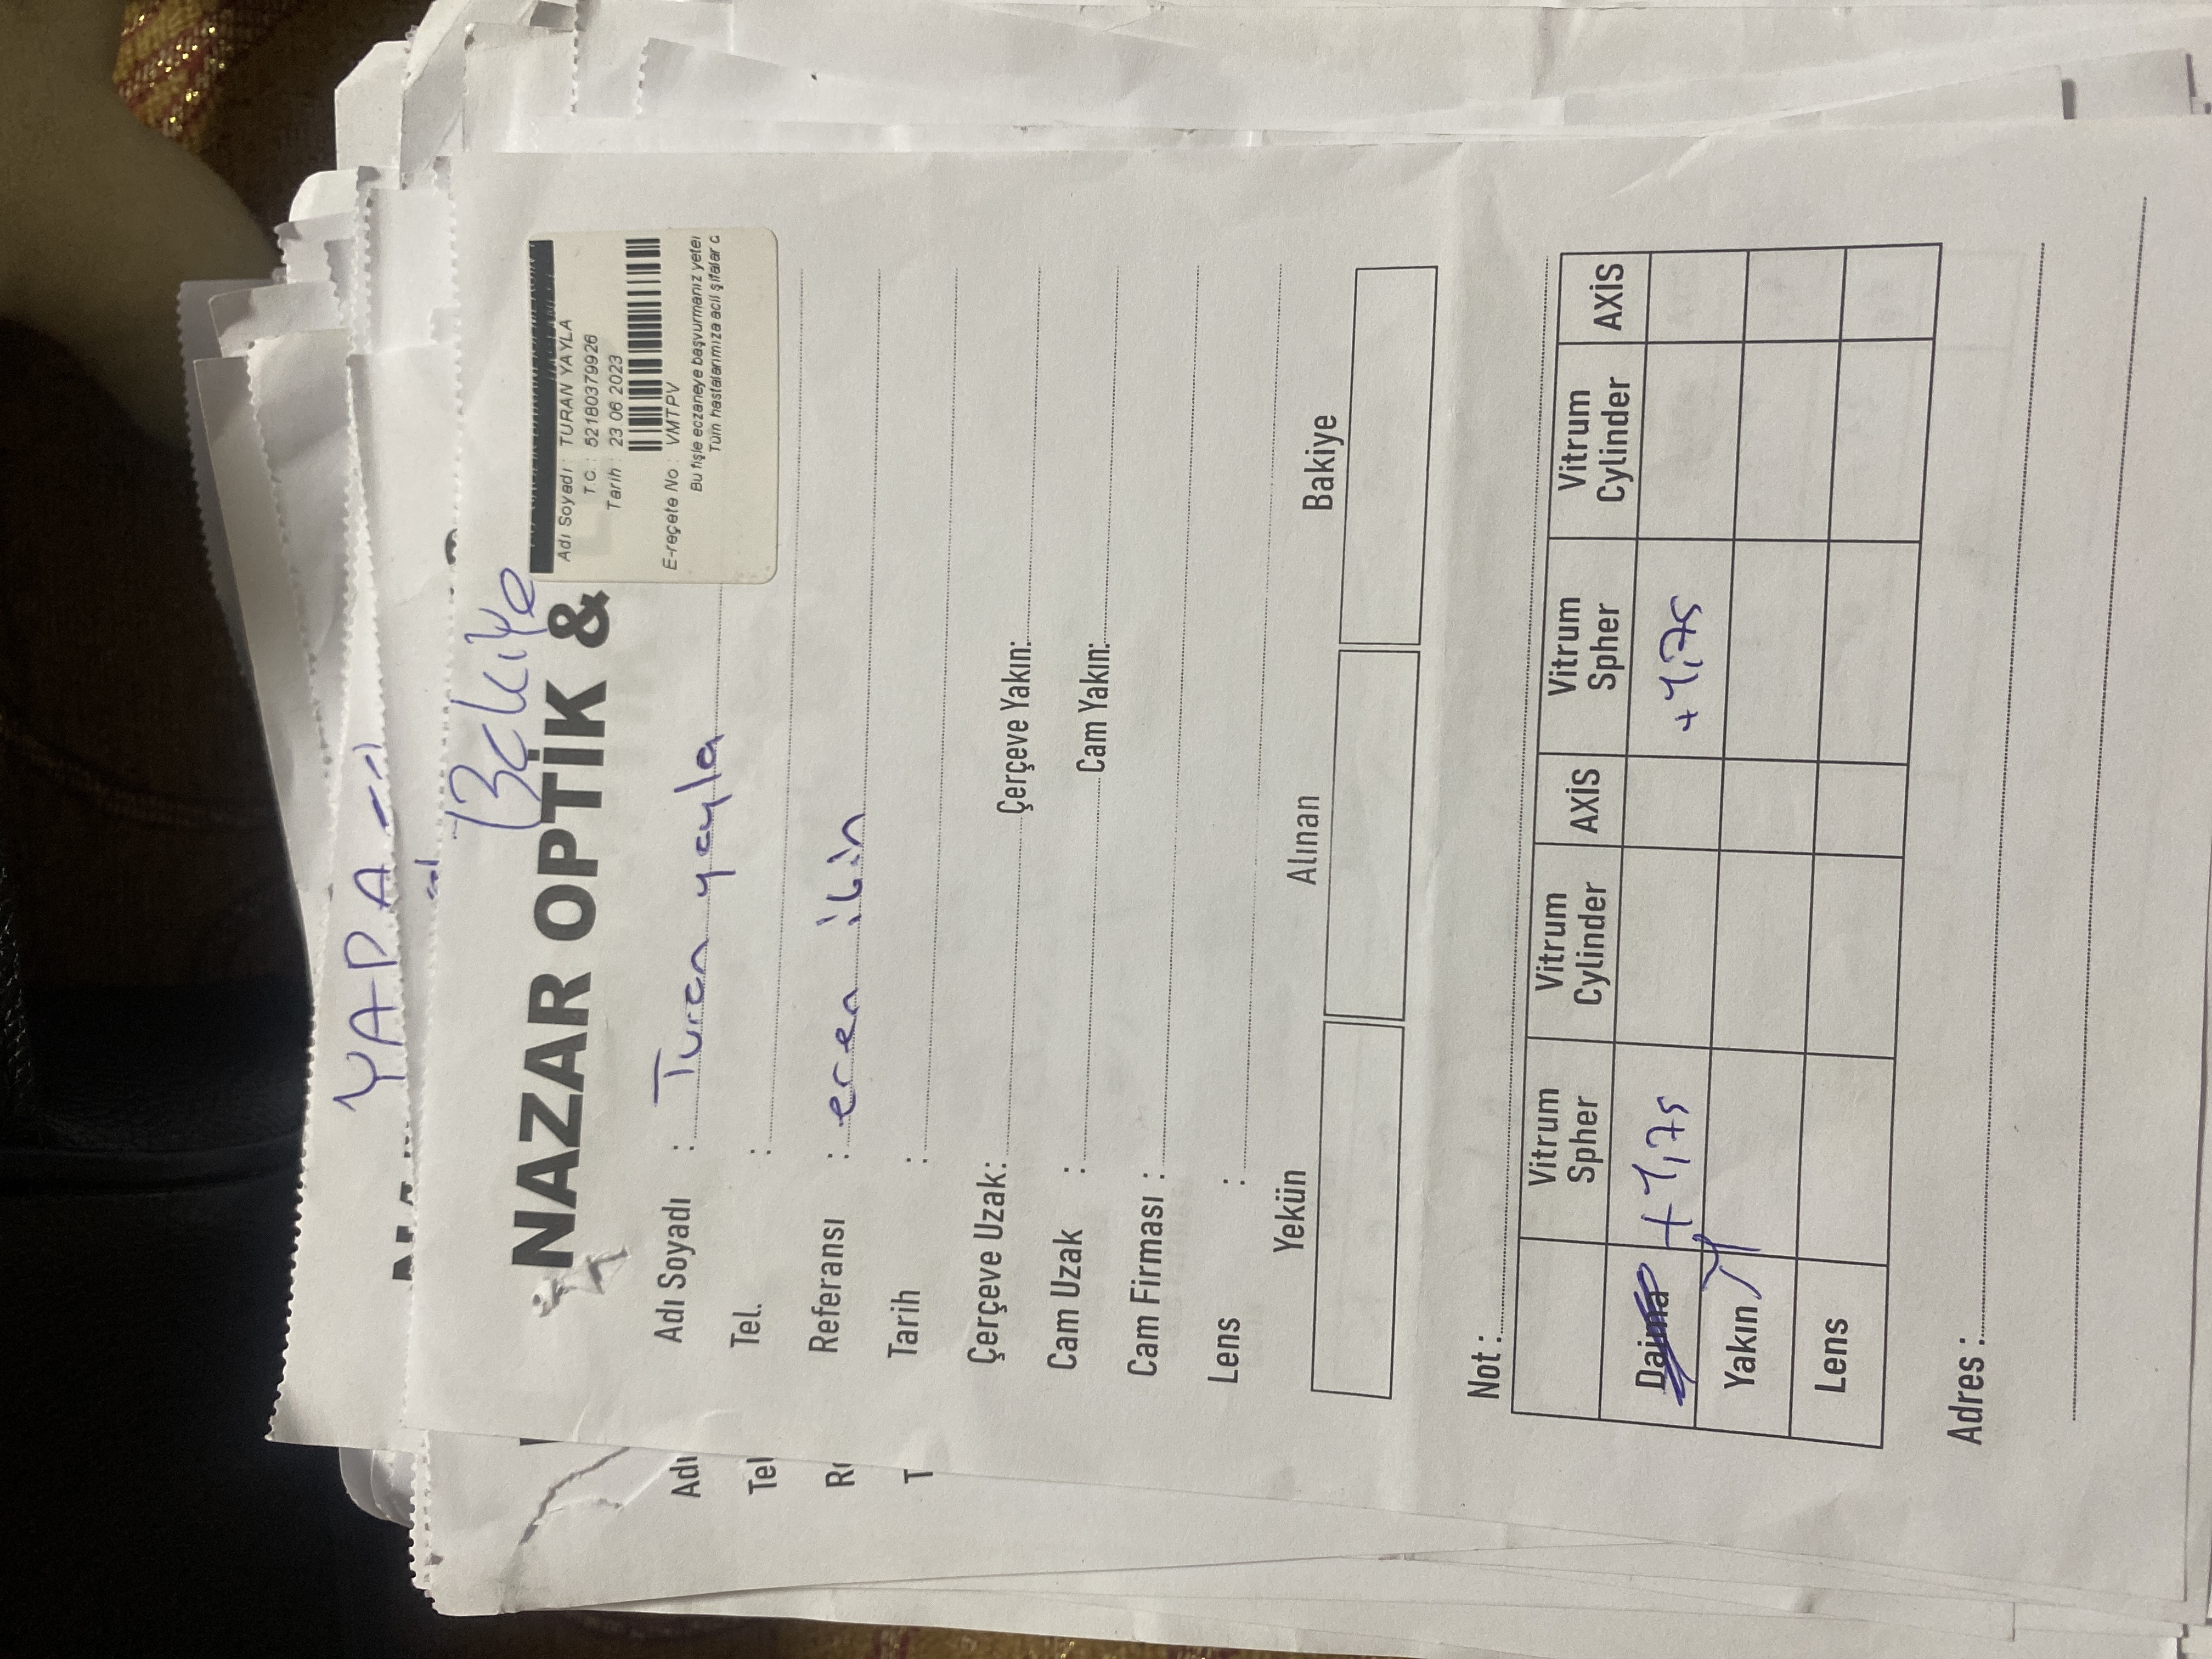 YAPA
Bakiye
NAZAR OPTİK &
Adı Soyadı : TURAN YAYLA
T.C. : 52180379926
Tarih : 23.06.2023
E-reçete No : VMTPV
Bu fişle eczaneye başvurmanız yeter
Tüm hastalarımıza acil şifalar d
Adı Soyadı : Turan yayla
Tel. :
Referansı : eren
Tarih :
Çerçeve Uzak: Çerçeve Yakın:
Cam Uzak : Cam Yakın:
Cam Firması :
Lens :
Yekün Alınan Bakiye
Not :
Vitrum Spher Vitrum Cylinder AXİS Vitrum Spher Vitrum Cylinder AXİS
Daima +1,75 +1,75
Yakın
Lens
Adres :
Adı
Tel